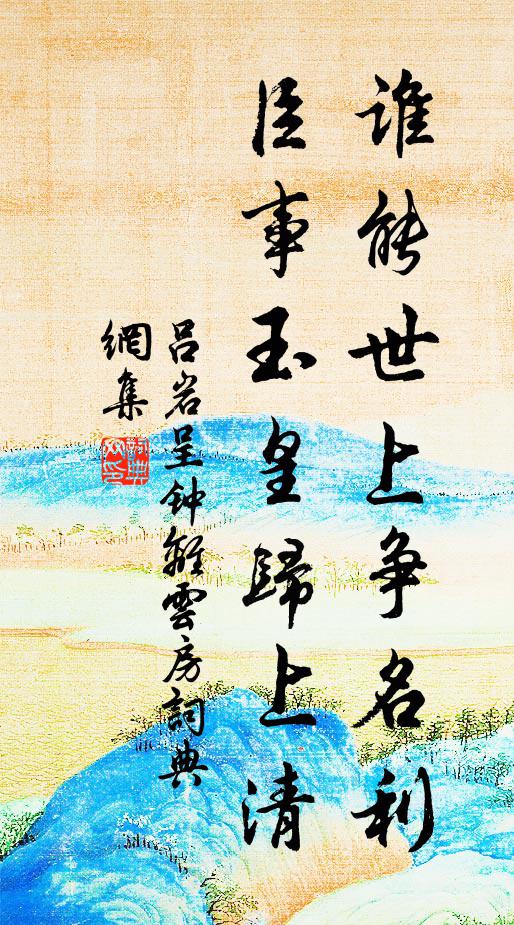 誰能世上争名利
臣事玉皇歸上清
吕岩呈钟離雲房詞典
網集